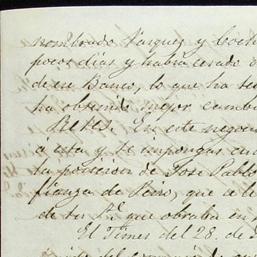 nombrado Vasquez y Coch
pocos dias y habia cesado
de en Banco, lo que ha te
ha obtenido mejor cambi
REYES. En este negoci
a esta y te impongas en
ta posicion de Jose Pablo
fianza de Peiro, que a la
de tu Sª que obraba en
El Times del 28. de